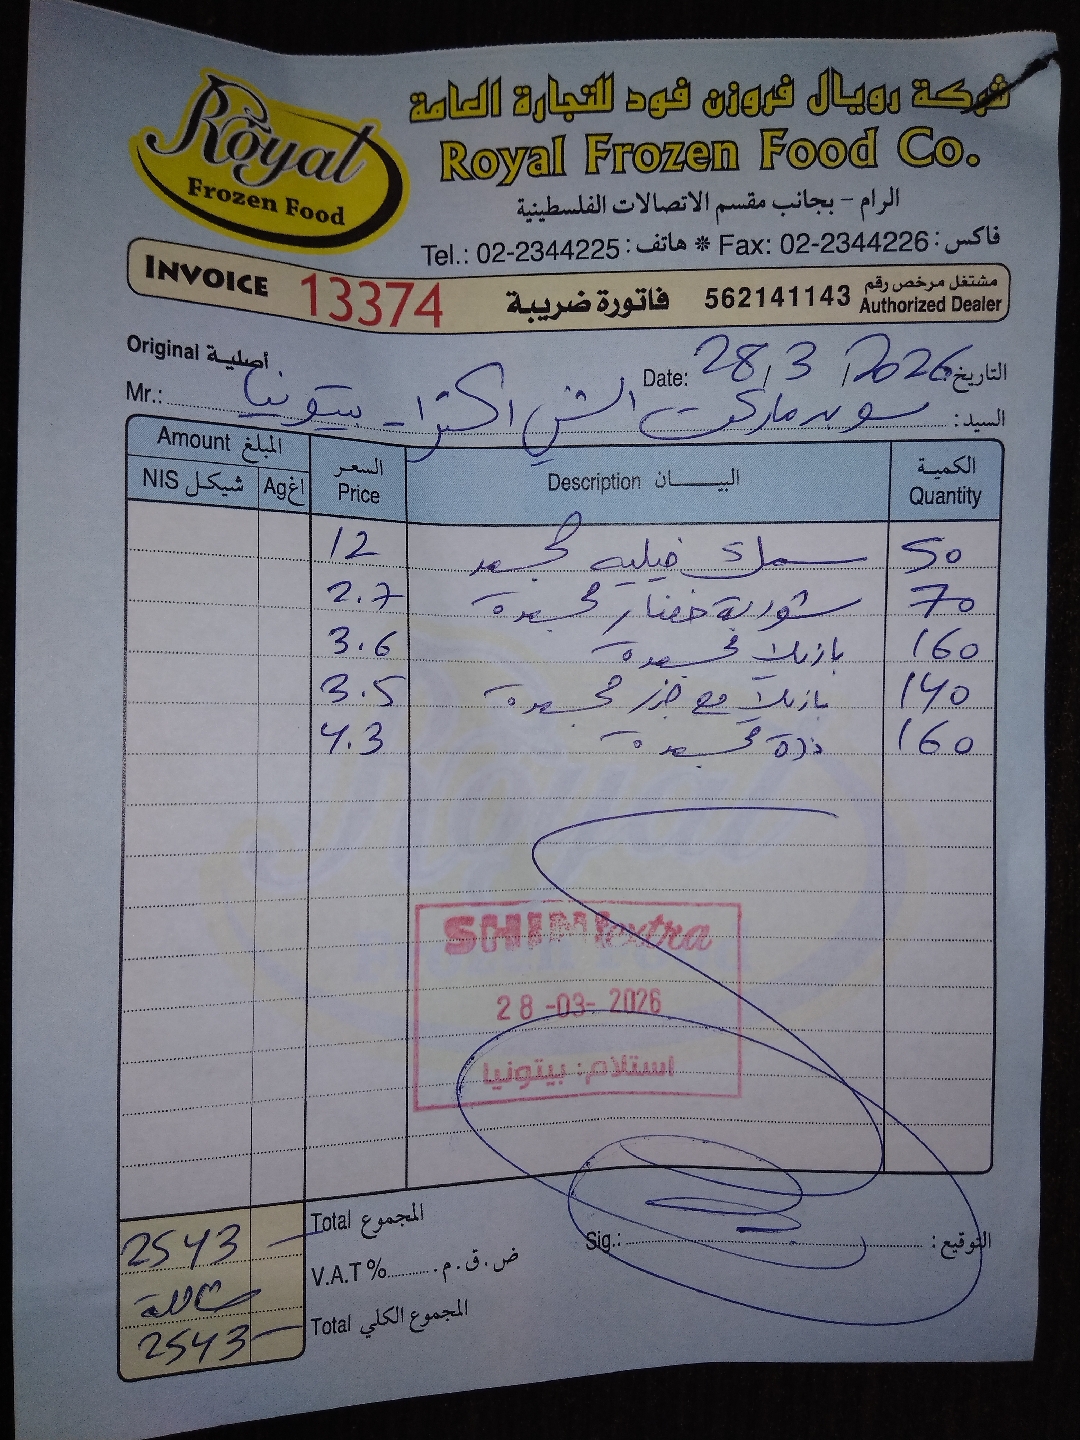 Royal
Frozen Food
شركة رويال فروزن فود للتجارة العامة
Royal Frozen Food Co.
الرام - بجانب مقسم الاتصالات الفلسطينية
Tel.: 02-2344225 : هاتف * Fax: 02-2344226 : فاكس
INVOICE 13374 فاتورة ضريبة 562141143 مشتغل مرخص رقم Authorized Dealer
Original أصلية
Date: 28/3/2026 التاريخ:
Mr.: سوبر ماركت الشني اكسترا - بيتونيا السيد:
Amount المبلغ
NIS شيكل Ag اغ السعر Price Description البيـــان الكمية Quantity
12 سمك فيليه مجمد 50
2.7 شوربة خضار مجمدة 70
3.6 بازيلا مجمدة 160
3.5 بازيلا مع جزر مجمدة 140
4.3 ذرة مجمدة 160
SHINI extra
28-03-2026
استلام: بيتونيا
2543 Total المجموع
شاملة V.A.T % ض.ق.م.
2543 Total المجموع الكلي
Sig.: التوقيع: